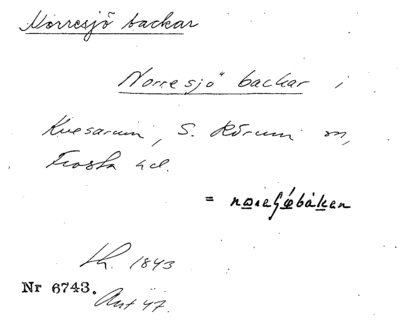 Norresjö backar
Norresjö backar i
Kvesarum, S. Rörum sn,
Frosta hd.
= 
Lh. 1843
Nr 6743.
Ant 47.